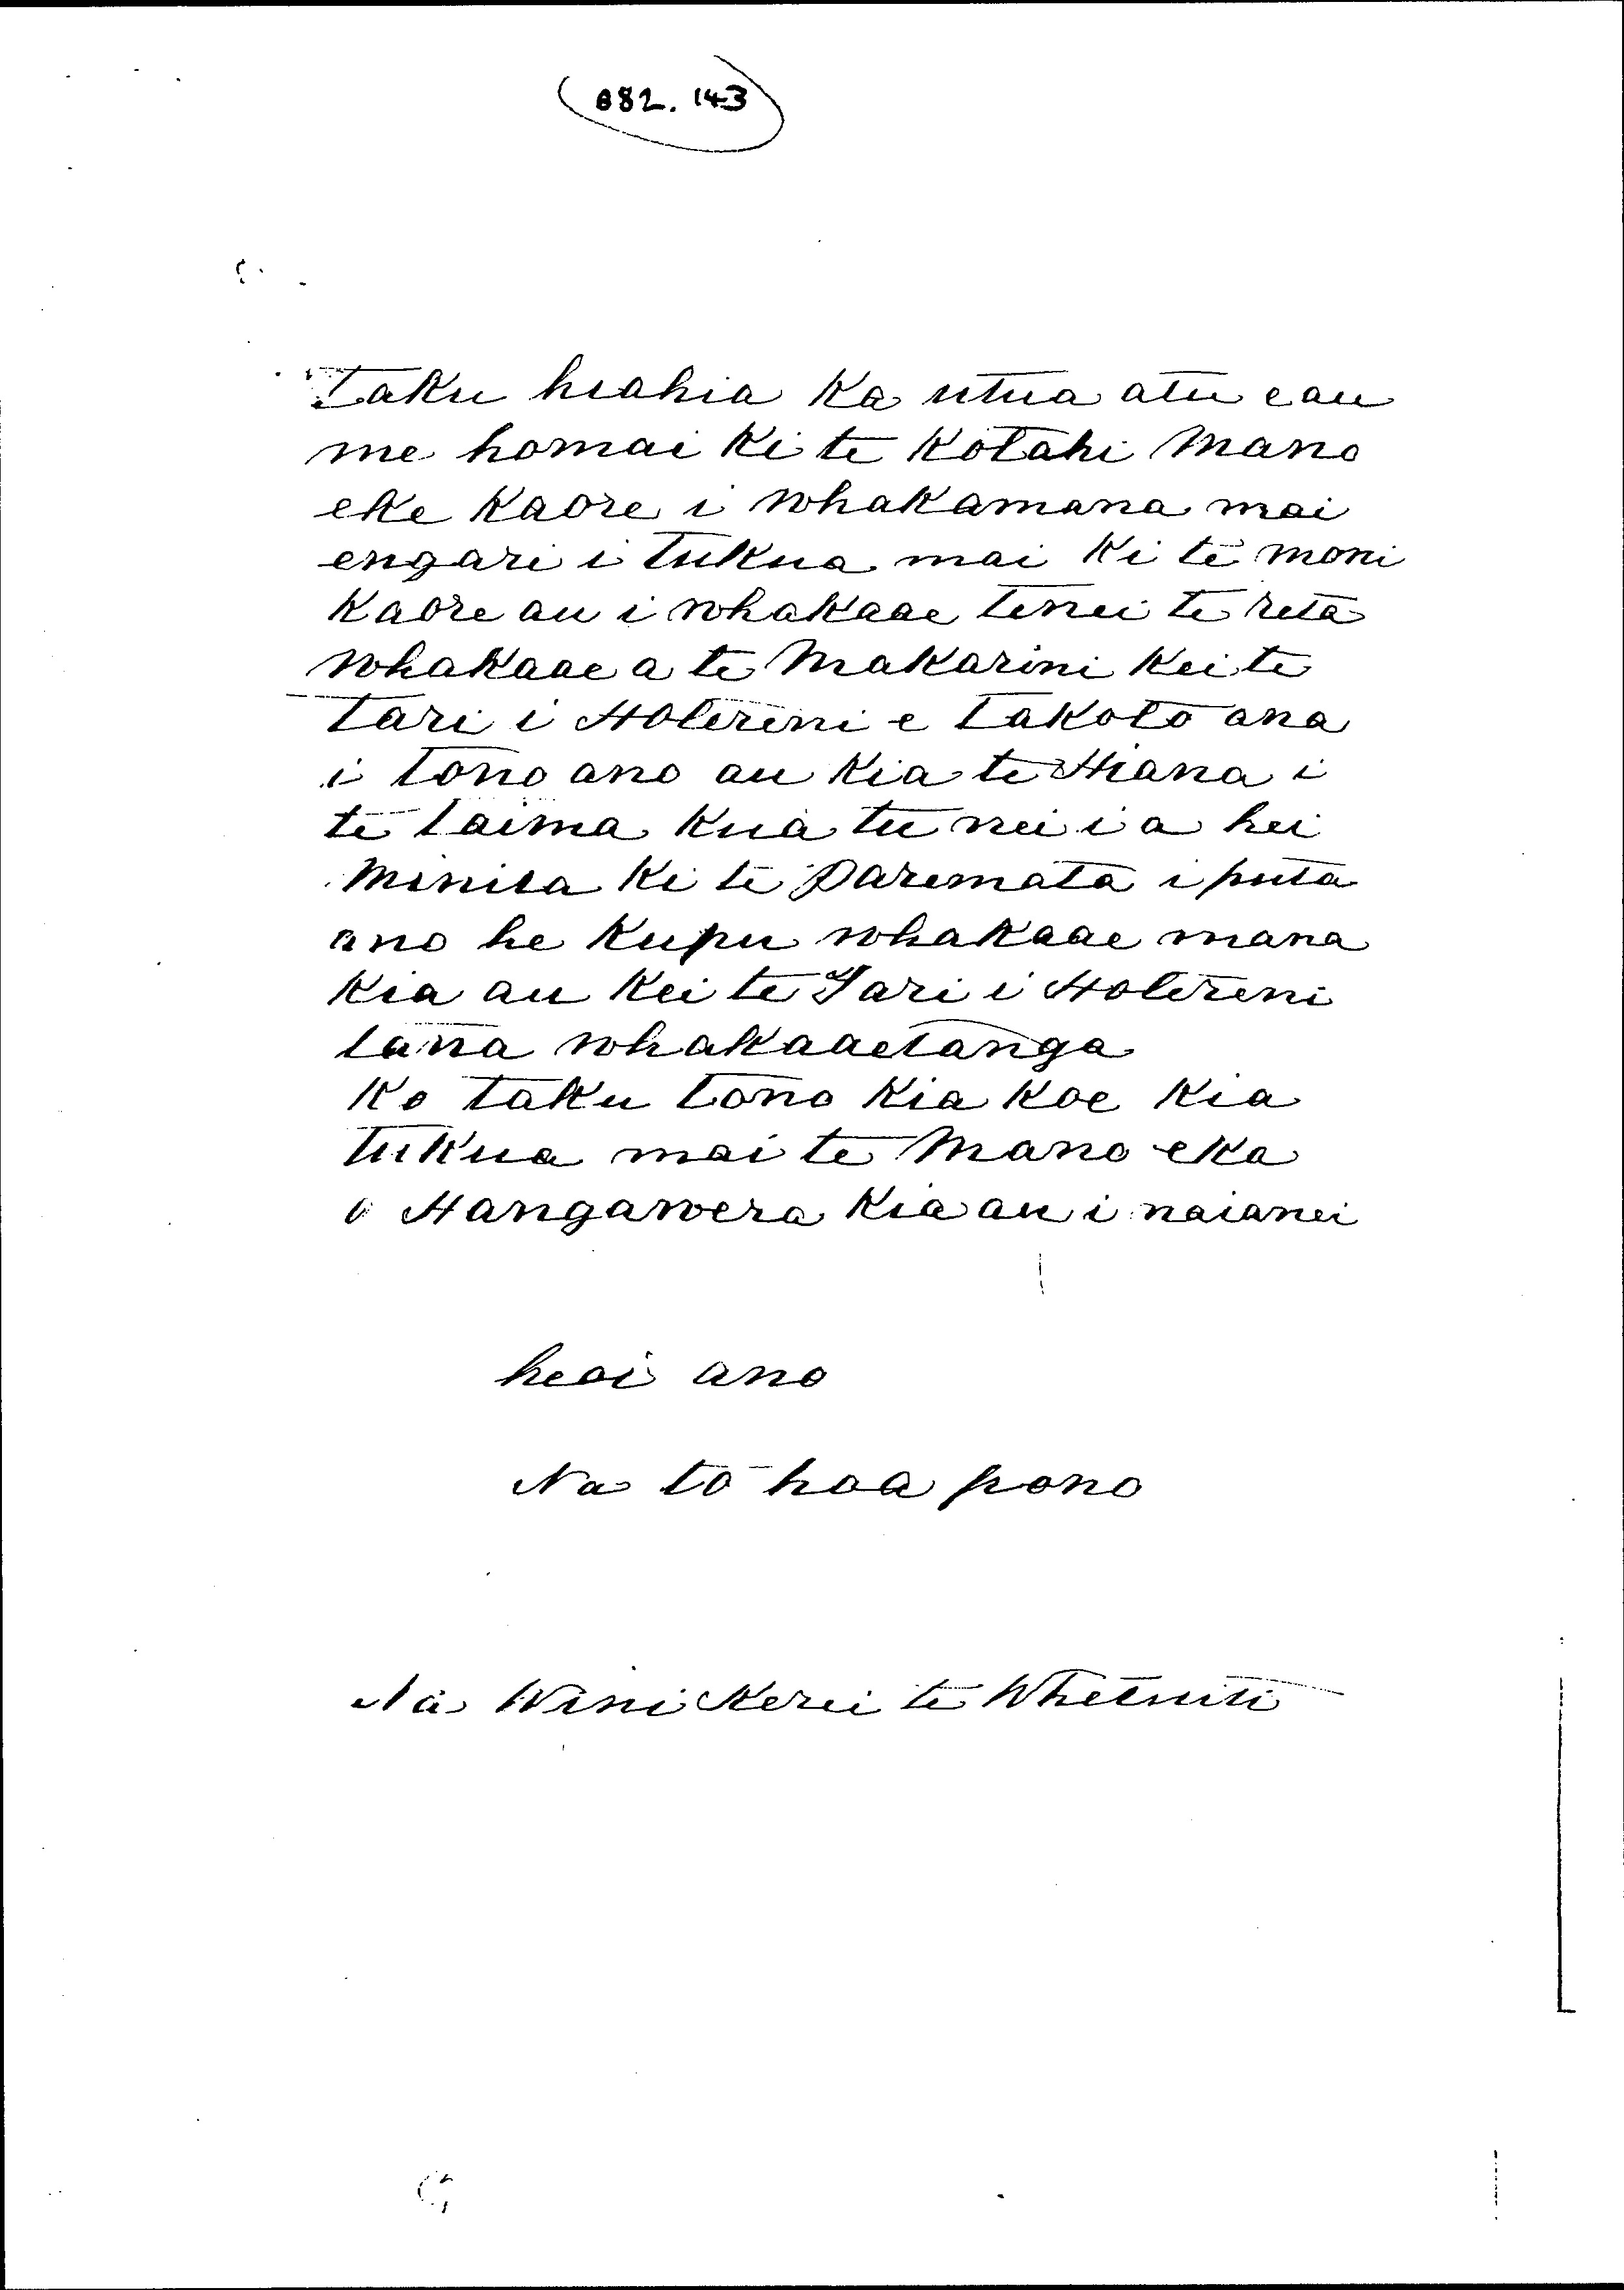 882.143
Taku hiahia ka utua atu e au
me homai ki te kotahi mano
eke kaore i whakamana mai
engari i tukua mai ki te moni
kaore au i whakaae tenei te reta
whakaae a te Makarini kei te
tari i Hotereni e takoto ana
i tono ano au kia te Hiana i
te taima kua tu nei i a hei
Minita ki te Paremata i puta
ano he kupu whakaae mana
kia au kei te Tari i Hotereni
tana whakaaetanga
ko taku tono kia koe kia
tukua mai te mano eka
o Hangawera kia au i naianei
heoi ano
Na to hoa pono
Na Wini Kerei te Whetuiti